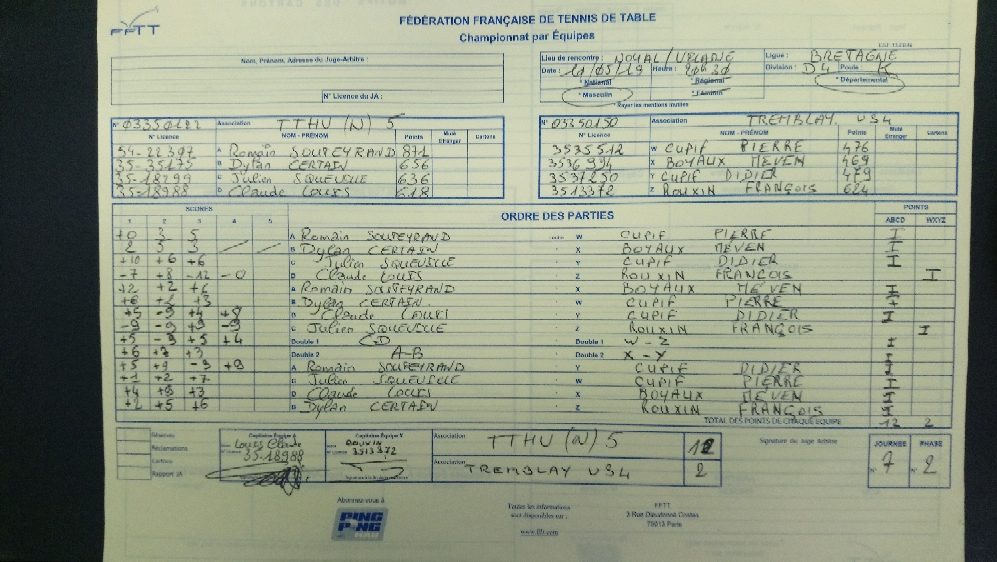 FFTT
FÉDÉRATION FRANÇAISE DE TENNIS DE TABLE
Championnat par Équipes
Nom, Prénom, Adresse du Juge-Arbitre :
N° Licence du JA :
Lieu de rencontre : NOYAL/VILAINE Ligue : BRETAGNE
Date : Heure : Division : D4 Poule : K
* National * Régional * Départemental
* Masculin * Féminin
* Rayer les mentions inutiles
N° 03350122 Association TTHV (N) 5
N° Licence NOM - PRÉNOM Points Muté Etranger Cartons
A Romain SOUPEYRAND 871
35-35175 B Dylan CERTAIN 656
35-18299 C Julien SQUEVILLE 636
35-18988 D Claude LOUIS 618
N° 03350150 Association TREMBLAY US4
N° Licence NOM - PRÉNOM Points Muté Etranger Cartons
3535512 W CUPIF PIERRE 476
3536994 X BOYAUX MEVEN 469
3537250 Y CUPIF DIDIER 479
3513372 Z ROUXIN FRANÇOIS 624
SCORES ORDRE DES PARTIES POINTS
1 2 3 4 5 ABCD WXYZ
+0 3 5 A Romain SOUPEYRAND W CUPIF PIERRE I
2 5 3 B Dylan CERTAIN X BOYAUX MEVEN I
+10 +6 +6 C Julien SQUEVILLE Y CUPIF DIDIER I
-7 +8 -12 D Claude LOUIS Z ROUXIN FRANCOIS I
+2 +2 +6 A Romain SOUPEYRAND X BOYAUX MEVEN I
+6 +2 +3 B Dylan CERTAIN W CUPIF PIERRE I
+5 -9 +4 D Claude LOUIS Y CUPIF DIDIER I
-9 -9 +9 -9 C Julien SQUEVILLE Z ROUXIN FRANÇOIS I
+5 -3 +5 +4 Double 1 CD Double 1 W - Z I
+6 +7 +3 Double 2 A-B Double 2 X - Y I
+5 +9 -3 +8 A Romain SOUPEYRAND Y CUPIF DIDIER I
+1 +2 +7 C Julien SQUEVILLE W CUPIF PIERRE I
+4 +8 +3 D Claude LOUIS X BOYAUX MEVEN I
+2 +5 +6 B Dylan CERTAIN Z ROUXIN FRANÇOIS I
TOTAL DES POINTS DE CHAQUE ÉQUIPE 12 2
Réserves
Réclamations
Cartons
Rapport JA
Capitaine Équipe A
LOUIS Claude
35-18988
Capitaine Équipe X
ROUXIN
3513372
Association TTHV (N) 5 12
Association TREMBLAY US4 2
Signature du Juge Arbitre
JOURNÉE PHASE
N° 7 N° 2
Abonnez-vous à
PING PONG
Toutes les informations
sont disponibles sur :
www.fftt.com
FFTT
3 Rue Dieudonné Costes
75013 Paris